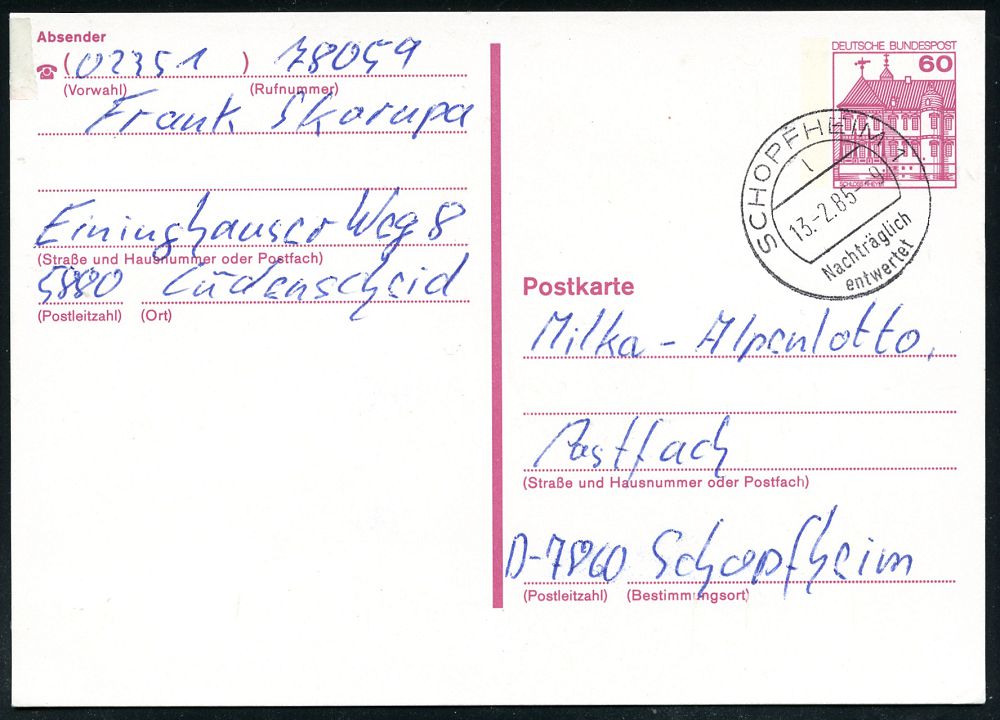 Absender
(02351) 78059
(Vorwahl) (Rufnummer)
Frank Skorupa
Eininghauser Weg 8
(Straße und Hausnummer oder Postfach)
5880 Lüdenscheid
(Postleitzahl) (Ort)
DEUTSCHE BUNDESPOST
60
SCHLOSS RHEYDT
SCHOPFHEIM 1
l
13.-2.85-9
Nachträglich
entwertet
Postkarte
Milka-Alpenlotto,
Postfach
(Straße und Hausnummer oder Postfach)
D-7860 Schopfheim
(Postleitzahl) (Bestimmungsort)